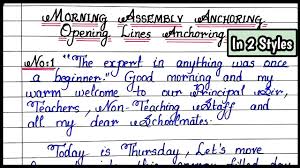 Morning Assembly Anchoring
Opening Lines Anchoring
In 2 Styles
No:1 "The expert in anything was once
a beginner." Good morning and my
warm welcome to our Principal Sir,
Teachers, Non-Teaching Staff and
all my dear Schoolmates.
Today is Thursday, Let's move